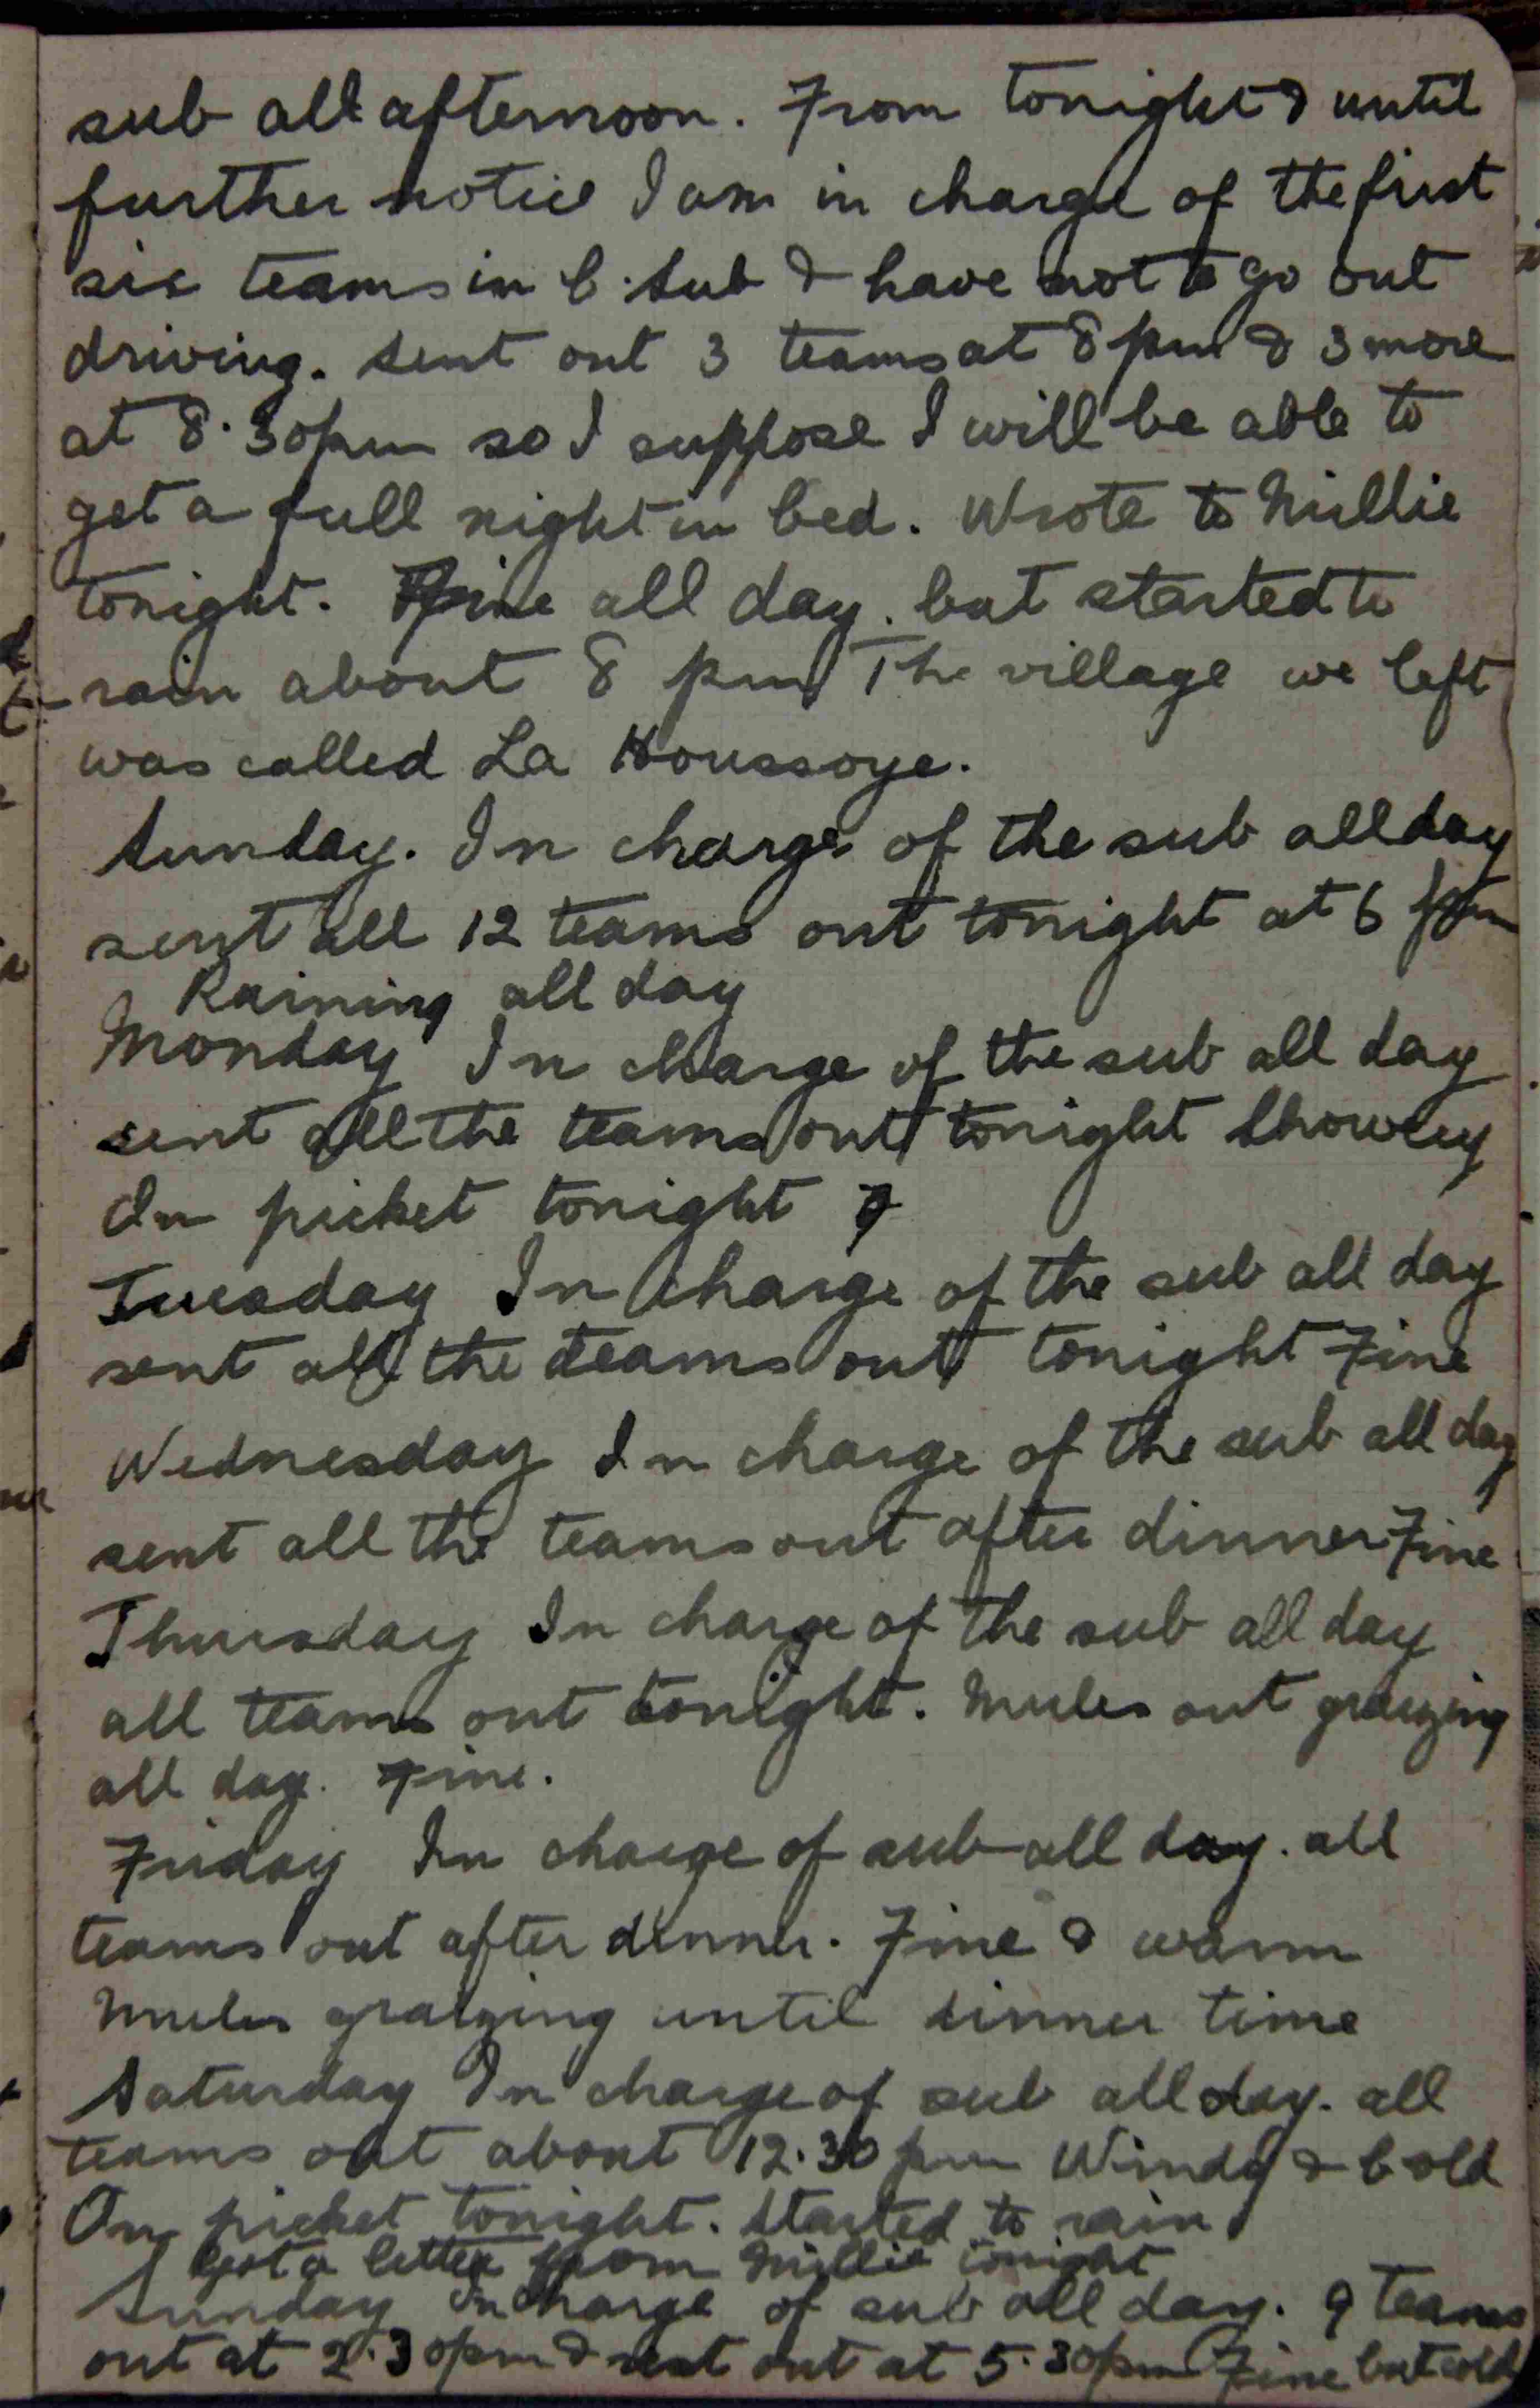 sub all afternoon. From tonight & until
further notice I am in charge of the first
six teams in C. Sub & have not to go out
driving. Sent out 3 teams at 8 pm & 3 more
at 8.30pm so I suppose I will be able to
get a full night in bed. Wrote to Millie
tonight. Fine all day. but started to
rain about 8 pm The village we left
was called La Houssoye.
Sunday. In charge of the sub all day
sent all 12 teams out tonight at 6 pm
Raining all day
Monday In charge of the sub all day
sent all the teams out tonight Showery
On picket tonight
Tuesday In charge of the sub all day
sent all the teams out tonight Fine
Wednesday In charge of the sub all day
sent all the teams out after dinner Fine
Thursday In charge of the sub all day
all teams out tonight. Mules out graizing
all day. Fine.
Friday In charge of sub all day. all
teams out after dinner. Fine & warm
Mules graizing until dinner time
Saturday In charge of sub all day. all
teams out about 12.30 pm Windy & Cold
On picket tonight. Started to rain
Got a letter from Millie tonight
Sunday In charge of sub all day. 9 teams
out at 2.30pm & rest out at 5.30pm Fine but cold